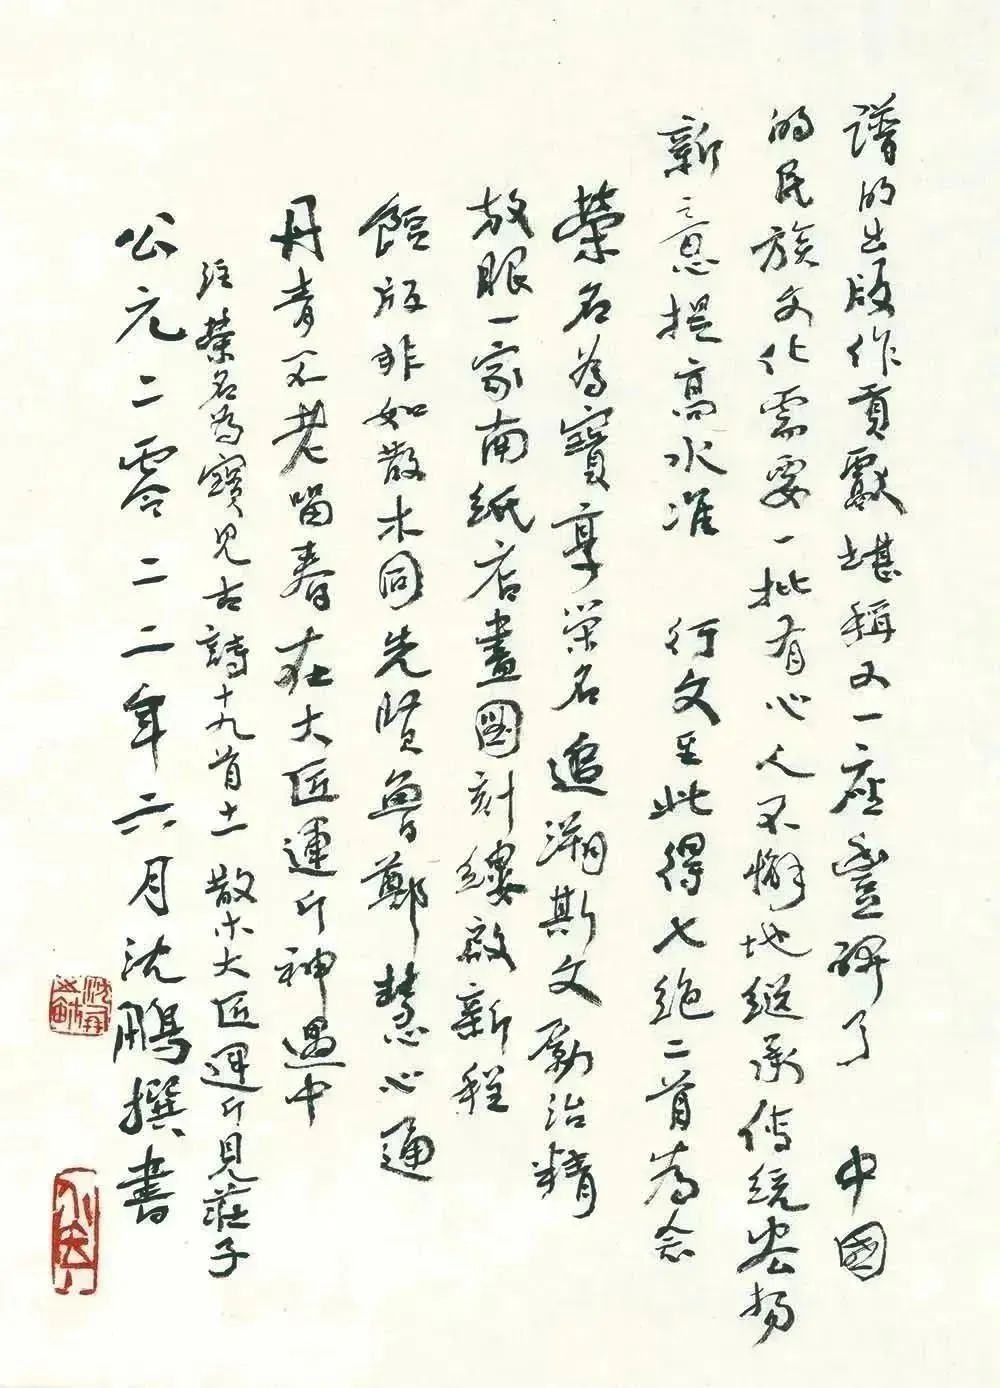 譜的出版作貢獻堪稱又一座豐碑了 中國
的民族文化需要一批有心人不懈地继承传统扬
新意提高水准 行文至此得七绝二首为念
榮名為寶享荣名 追溯斯文勵治精
放眼一家南纸店畫圖刻縷啟新程
餖版非如散木同先贤魯鄭慧心通
丹青不老留春在大匠運斤神遇中
注 榮名為寶見古詩十九首十一 散木大匠運斤見莊子
公元二零二二年六月沈鵬撰書